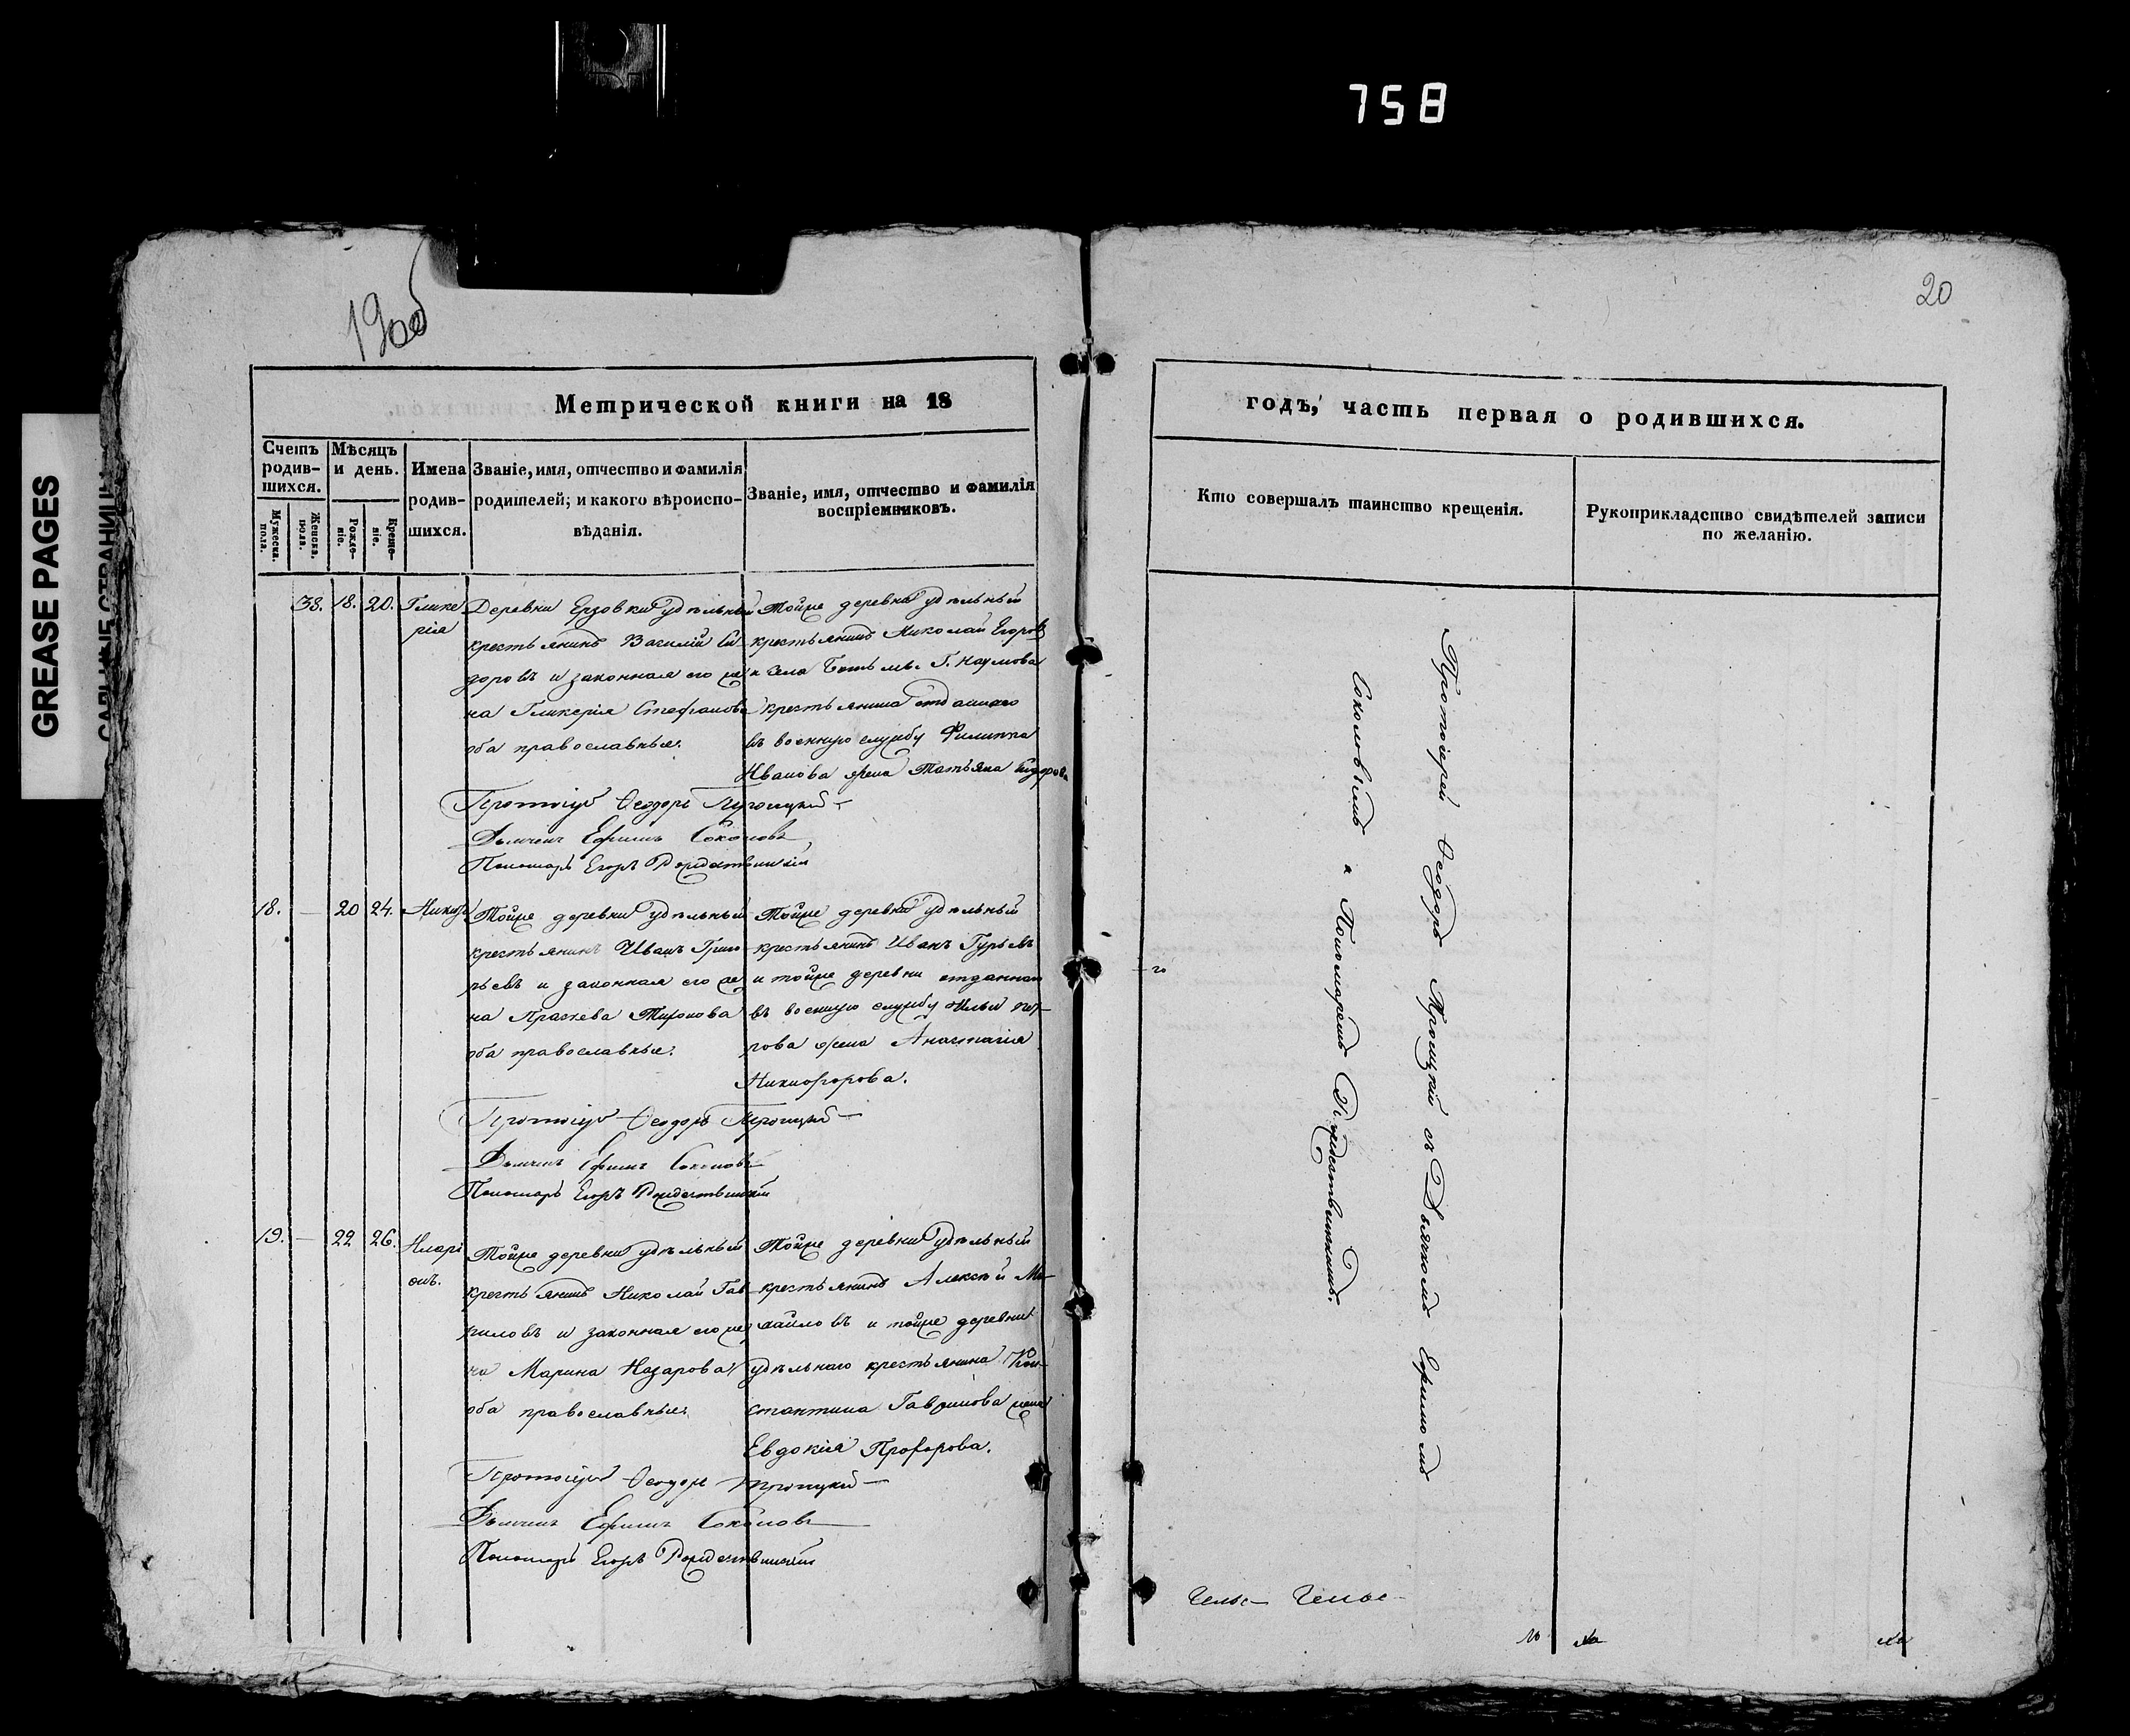 758
GREASE PAGES
19об
20
Метрической книги на 18
годъ, часть первая о родившихся.
Счетъ родив-шихся.
Мужеска. пола.
Женска. пола.
Мѣсяцъ и день.
Рожде-ніе.
Креще-ніе.
Имена родив-шихся.
Званіе, имя, отчество и фамилія родителей; и какого вѣроиспо-вѣданія.
Званіе, имя, отчество и фамилія воспріемниковъ.
Кто совершалъ таинство крещенія.
Рукоприкладство свидѣтелей записи по желанію.
38. 18. 20. Глике
рія
Деревни Ерзовки удѣльный
крестьянинъ Василій Си-
доровъ и законная его же
на Гликерія Стефанова
оба православные.
Тойже деревни удѣльный
крестьянинъ Николай Егоровъ
и села Г. Наумова
крестьянина отданнаго
въ военную службу Филиппа
Иванова жена Татьяна Сидорова
Протоіерей Ѳеодоръ Троицкій
Дьячекъ Ефимъ Соколовъ
Пономарь Егоръ Рождественскій
18. — 20 24.
Тойже деревни удѣльный
крестьянинъ Иванъ Григо
рьевъ и законная его же
на Праскева Миронова
оба православные.
Тойже деревни удѣльный
крестьянинъ Иванъ Гурьевъ
и тойже деревни отданнаго
въ военную службу Ильи Пет
рова жена Анастасія
Никифорова.
Протоіерей Ѳеодоръ Троицкій
Дьячекъ Ефимъ Соколовъ
Пономарь Егоръ Рождественскій
19. — 22 26. Иларі
онъ.
Тойже деревни удѣльный
крестьянинъ Николай Гав
риловъ и законная его же
на Марина Назарова
оба православные.
Тойже деревни удѣльный
крестьянинъ Алексѣй Ми
хайловъ и тойже деревни
удѣльнаго крестьянина Кон
стантина Гаврилова жена
Евдокія Прохорова.
Протоіерей Ѳеодоръ Троицкій
Дьячекъ Ефимъ Соколовъ
Пономарь Егоръ Рождественскій
Протоіерей Ѳеодоръ Троицкій съ Дьячкомъ Ефимомъ
Соколовымъ и Пономаремъ Рождественскимъ.